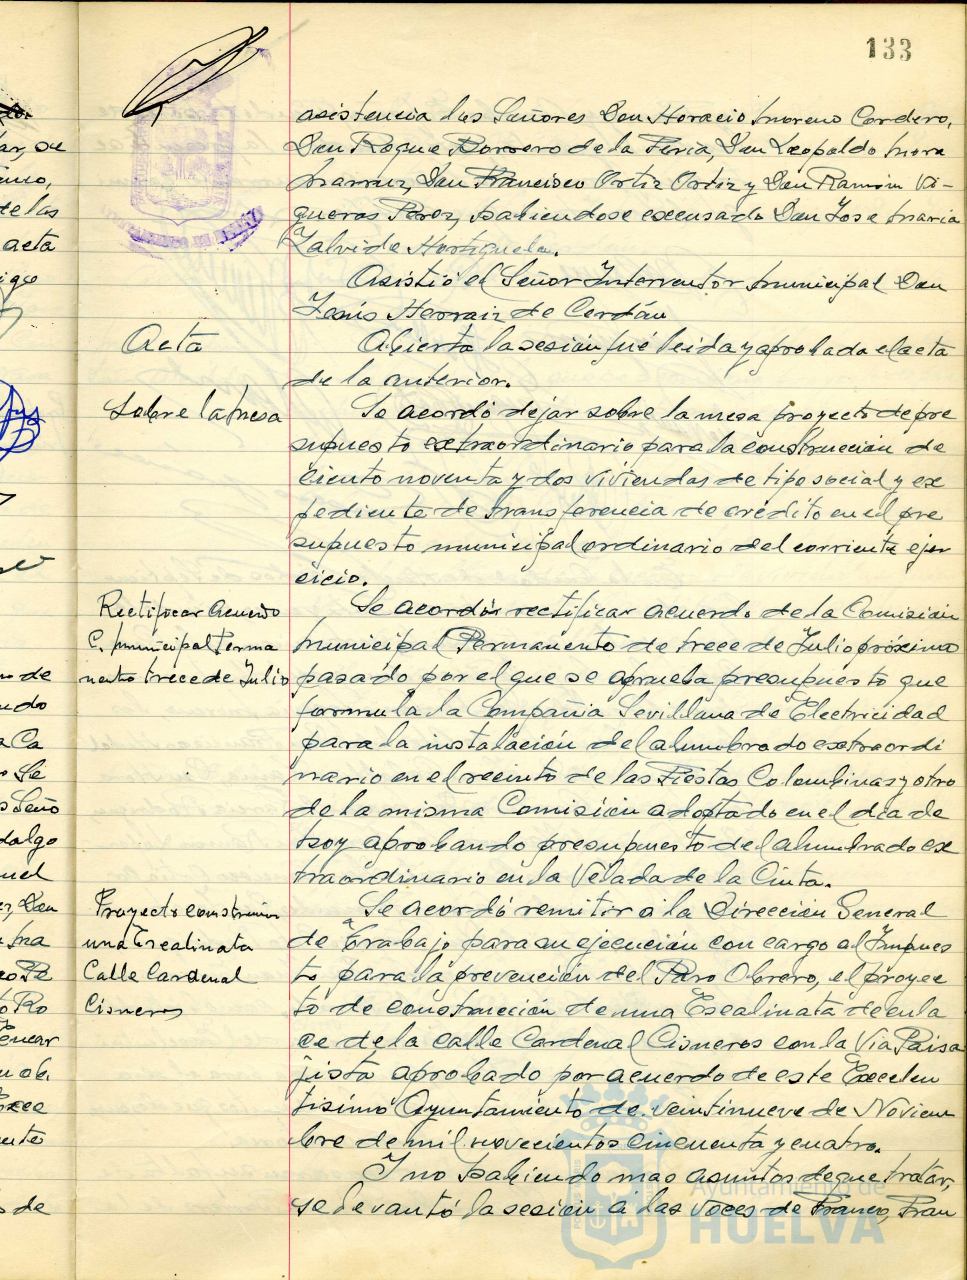 133
asistencia los Señores Don Horacio Moreno Cordero,
Don Roque Borrero de la Feria, Don Leopoldo Mora
Marruz, Don Francisco Ortiz Ortiz y Don Ramón Vi-
gueras Perez, habiendose excusado Don Jose Maria
Zalvide Hortiguela.
Asistió el Señor Interventor Municipal Don
Jesús Herraiz de Cerdán
Acta
Abierta la sesión fué leida y aprobada el acta
de la anterior.
Sobre la mesa
Se acordó dejar sobre la mesa proyecto de pre
supuesto extraordinario para la construcción de
ciento noventa y dos viviendas de tipo social y ex
pediente de transferencia de crédito en el pre
supuesto municipal ordinario del corriente ejer
cicio.
Rectificar Acuerdo
C. Municipal Perma
nente trece de Julio
Se acordó rectificar acuerdo de la Comisión
Municipal Permanente de trece de Julio próximo
pasado por el que se aprueba presupuesto que
formula la Compañia Sevillana de Electricidad
para la instalación del alumbrado extraordi
nario en el recinto de las Fiestas Colombinas y otro
de la misma Comisión adoptado en el dia de
hoy aprobando presupuesto del alumbrado ex
traordinario en la Velada de la Cinta.
Proyecto
una Escalinata
Calle Cardenal
Cisneros
Se acordó remitir a la Dirección General
de Trabajo para su ejecución con cargo al Impues
to para la prevención del Paro Obrero, el proyec
to de construcción de una Escalinata de enla
ce de la calle Cardenal Cisneros con la Via Paisa
jista aprobado por acuerdo de este Excelen
tisimo Ayuntamiento de veintinueve de Noviem
bre de mil novecientos cincuenta y cuatro.
Y no habiendo mas asuntos de que tratar,
se levantó la sesión a las voces de Franco, Fran
Ayuntamiento de
HUELVA